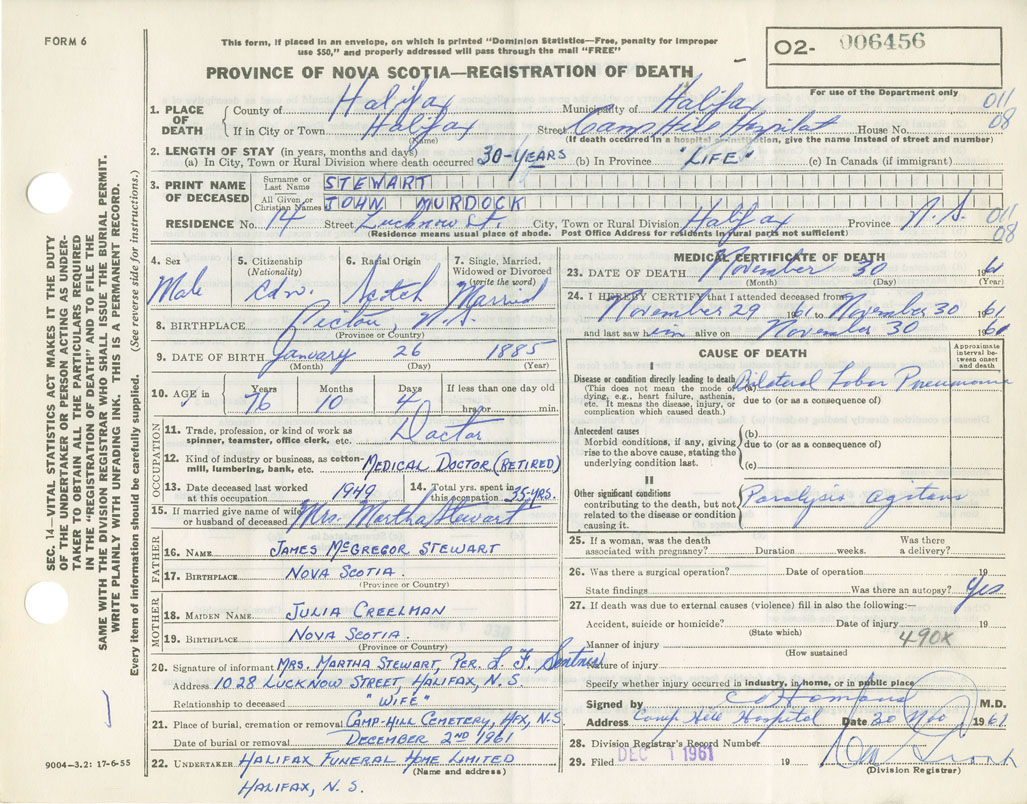 FORM 6
This form, if placed in an envelope, on which is printed "Dominion Statistics—Free, penalty for improper
use $50," and properly addressed will pass through the mail "FREE"
PROVINCE OF NOVA SCOTIA—REGISTRATION OF DEATH
O2- 006456
For use of the Department only
011
08
1. PLACE OF DEATH { County of Halifax Municipality of Halifax
If in City or Town Halifax Street Camp Hill Hospital House No.
(Name) (If death occurred in a hospital or institution, give the name instead of street and number)
2. LENGTH OF STAY (in years, months and days)
(a) In City, Town or Rural Division where death occurred 30-YEARS (b) In Province "LIFE" (c) In Canada (if immigrant)
3. PRINT NAME OF DECEASED { Surname or Last Name STEWART
All Given or Christian Names JOHN MURDOCK
RESIDENCE No. 14 Street Lucknow St. City, Town or Rural Division Halifax Province N.S.
(Residence means usual place of abode. Post Office Address for residents in rural parts not sufficient)
011
08
4. Sex Male
5. Citizenship (Nationality) Cdn.
6. Racial Origin Scotch
7. Single, Married, Widowed or Divorced (write the word) Married
8. BIRTHPLACE Pictou, N.S.
(Province or Country)
9. DATE OF BIRTH January 26 1885
(Month) (Day) (Year)
10. AGE in { Years 76 Months 10 Days 4 If less than one day old hrs. or min.
OCCUPATION
11. Trade, profession, or kind of work as spinner, teamster, office clerk, etc. Doctor
12. Kind of industry or business, as cotton-mill, lumbering, bank, etc. MEDICAL DOCTOR (RETIRED)
13. Date deceased last worked at this occupation 1949
14. Total yrs. spent in this occupation 35-YRS.
15. If married give name of wife or husband of deceased Mrs. Martha Stewart
FATHER
16. NAME JAMES McGREGOR STEWART
17. BIRTHPLACE NOVA SCOTIA.
(Province or Country)
MOTHER
18. MAIDEN NAME JULIA CREELMAN
19. BIRTHPLACE NOVA SCOTIA.
(Province or Country)
20. Signature of informant MRS. MARTHA STEWART, PER. L. F.
Address 1028 LUCKNOW STREET, HALIFAX, N.S
Relationship to deceased "WIFE"
21. Place of burial, cremation or removal CAMP-HILL CEMETERY, HFX, N.S
Date of burial or removal DECEMBER 2ND 1961
22. UNDERTAKER HALIFAX FUNERAL HOME LIMITED
(Name and address)
HALIFAX, N.S.
MEDICAL CERTIFICATE OF DEATH
23. DATE OF DEATH November 30 1961
(Month) (Day) (Year)
24. I HEREBY CERTIFY that I attended deceased from
November 29 1961 to November 30 1961
and last saw him alive on November 30 1961
CAUSE OF DEATH
Approximate interval between onset and death
I
Disease or condition directly leading to death (a) Bilateral Lobar Pneumonia
(This does not mean the mode of dying, e.g., heart failure, asthenia, etc. It means the disease, injury, or complication which caused death.)
due to (or as a consequence of)
Antecedent causes
Morbid conditions, if any, giving rise to the above cause, stating the underlying condition last.
(b)
due to (or as a consequence of)
(c)
II
Other significant conditions contributing to the death, but not related to the disease or condition causing it.
Paralysis agitans
25. If a woman, was the death associated with pregnancy? Duration weeks. Was there a delivery?
26. Was there a surgical operation? Date of operation 19
State findings Was there an autopsy? Yes
27. If death was due to external causes (violence) fill in also the following:—
Accident, suicide or homicide? Date of injury 19
(State which)
490X
Manner of injury
(How sustained
Nature of injury
Specify whether injury occurred in industry, in home, or in public place
Signed by M.D.
Address Camp Hill Hospital Date 30 Nov 1961
28. Division Registrar's Record Number
29. Filed DEC 1 1961 19
(Division Registrar)
SEC. 14—VITAL STATISTICS ACT MAKES IT THE DUTY
OF THE UNDERTAKER OR PERSON ACTING AS UNDER-
TAKER TO OBTAIN ALL THE PARTICULARS REQUIRED
IN THE "REGISTRATION OF DEATH" AND TO FILE THE
SAME WITH THE DIVISION REGISTRAR WHO SHALL ISSUE THE BURIAL PERMIT.
WRITE PLAINLY WITH UNFADING INK. THIS IS A PERMANENT RECORD.
Every item of information should be carefully supplied. (See reverse side for instructions.)
9004—3.2: 17-6-55